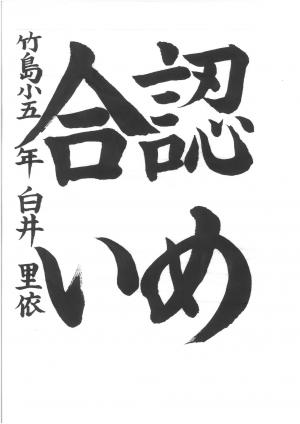 認め
合い
竹島小五年 白井里依